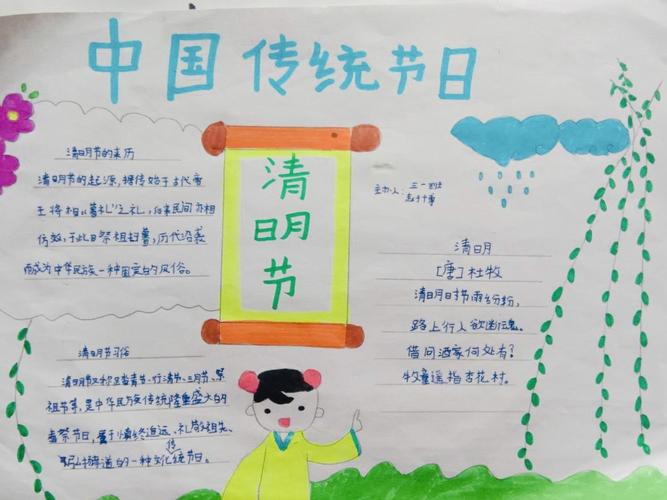 中国传统节日
清明节的来历
清明节的起源，据传始于古代帝
王将相"墓礼"之礼，后来民间亦相
仿效，于此日祭祖扫墓，历代沿袭
而成为中华民族一种固定的风俗。
清明节
主办人：三一四班
清明
[唐]杜牧
清明时节雨纷纷，
路上行人欲断魂。
借问酒家何处有？
牧童遥指杏花村。
清明节习俗
清明节又称踏青节、行清节、三月节、祭
祖节等，是中华民族传统隆重盛大的
春祭节日，属于慎终追远、礼敬祖先、
弘扬孝道的一种文化传统节日。